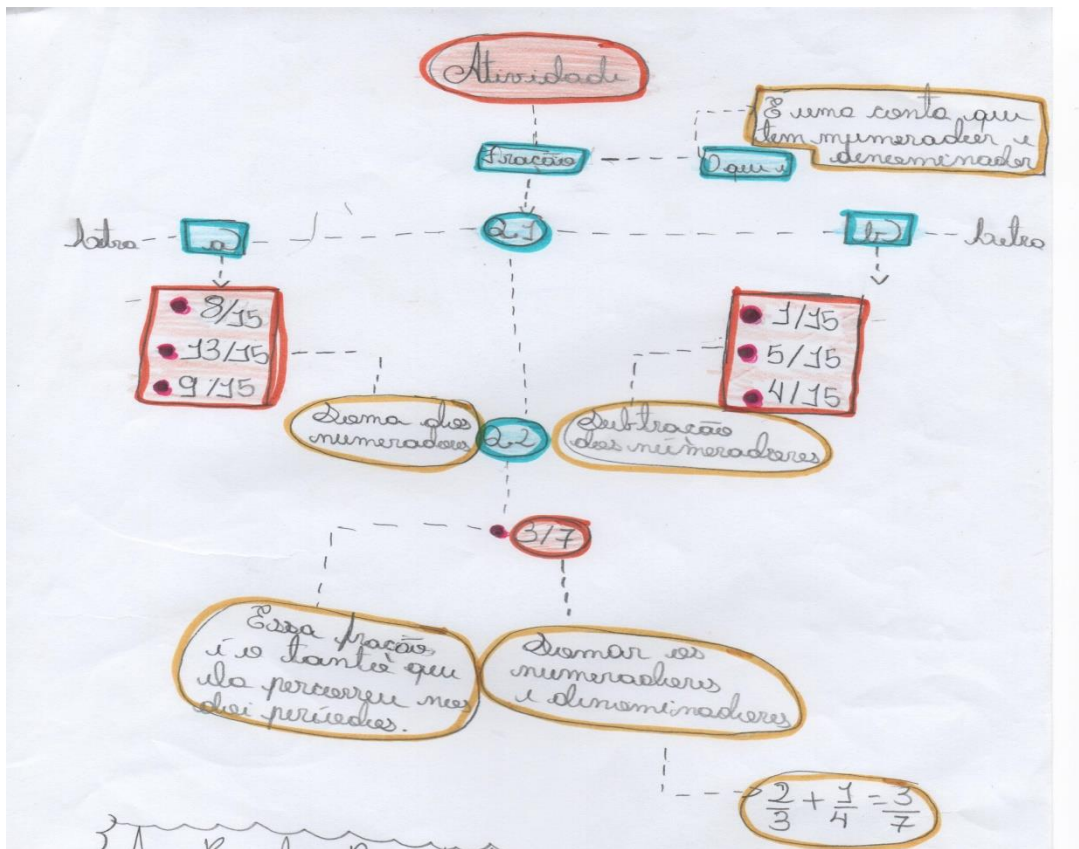 Atividade
Fração
O que é
É uma conta que
tem numerador e
denominador
Letra
a)
2.1
b)
Letra
8/15
13/15
9/15
1/15
5/15
4/15
Soma dos
numeradores
2.2
Subtração
dos númeradores
3/7
Essa fração
é o tanto que
ela percorreu nos
doi períodos.
Somar os
numeradores
e denominadores
2/3 + 1/4 = 3/7